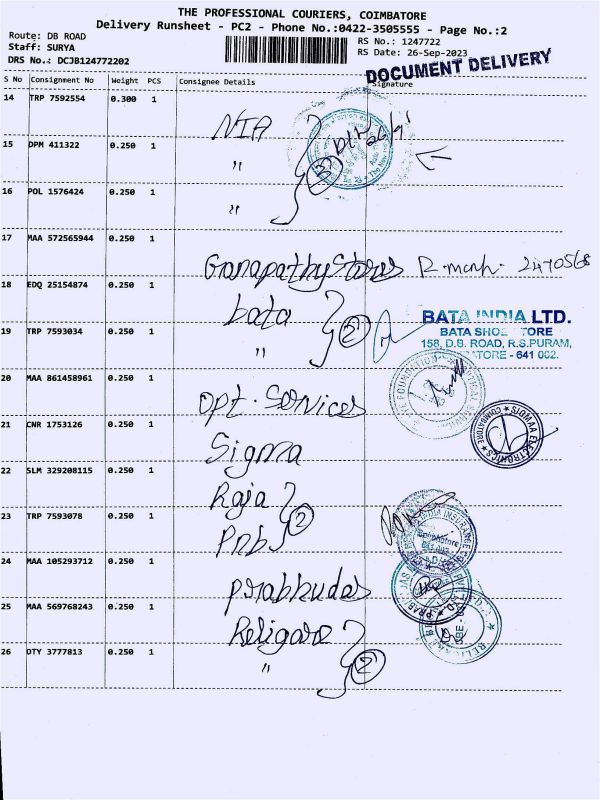 THE PROFESSIONAL COURIERS, COIMBATORE
Delivery Runsheet - PC2 - Phone No.:0422-3505555 - Page No.:2
Route: DB ROAD
RS No.: 1247722
Staff: SURYA
RS Date: 26-Sep-2023
DRS No.: DCJB124772202
DOCUMENT DELIVERY
S No Consignment No Weight PCS Consignee Details Signature
14 TRP 7592554 0.300 1 NIA
15 DPM 411322 0.250 1 "
3
26/9
16 POL 1576424 0.250 1 "
17 MAA 572565944 0.250 1 Ganapathy Stores
2470568
18 EDQ 25154874 0.250 1 bata
2
BATA INDIA LTD.
BATA SHOE STORE
158, D.B. ROAD, R.S.PURAM,
641 002.
19 TRP 7593034 0.250 1 "
20 MAA 861458961 0.250 1 opt. Services
THE FOUNDATION
21 CNR 1753126 0.250 1 Sigma
COIMBATORE
22 SLM 329208115 0.250 1 Raja
2
23 TRP 7593078 0.250 1 Pnb
INDIA INSURANCE
24 MAA 105293712 0.250 1 Prabhudas
25 MAA 569768243 0.250 1 Religare
26 OTY 3777813 0.250 1 "
2